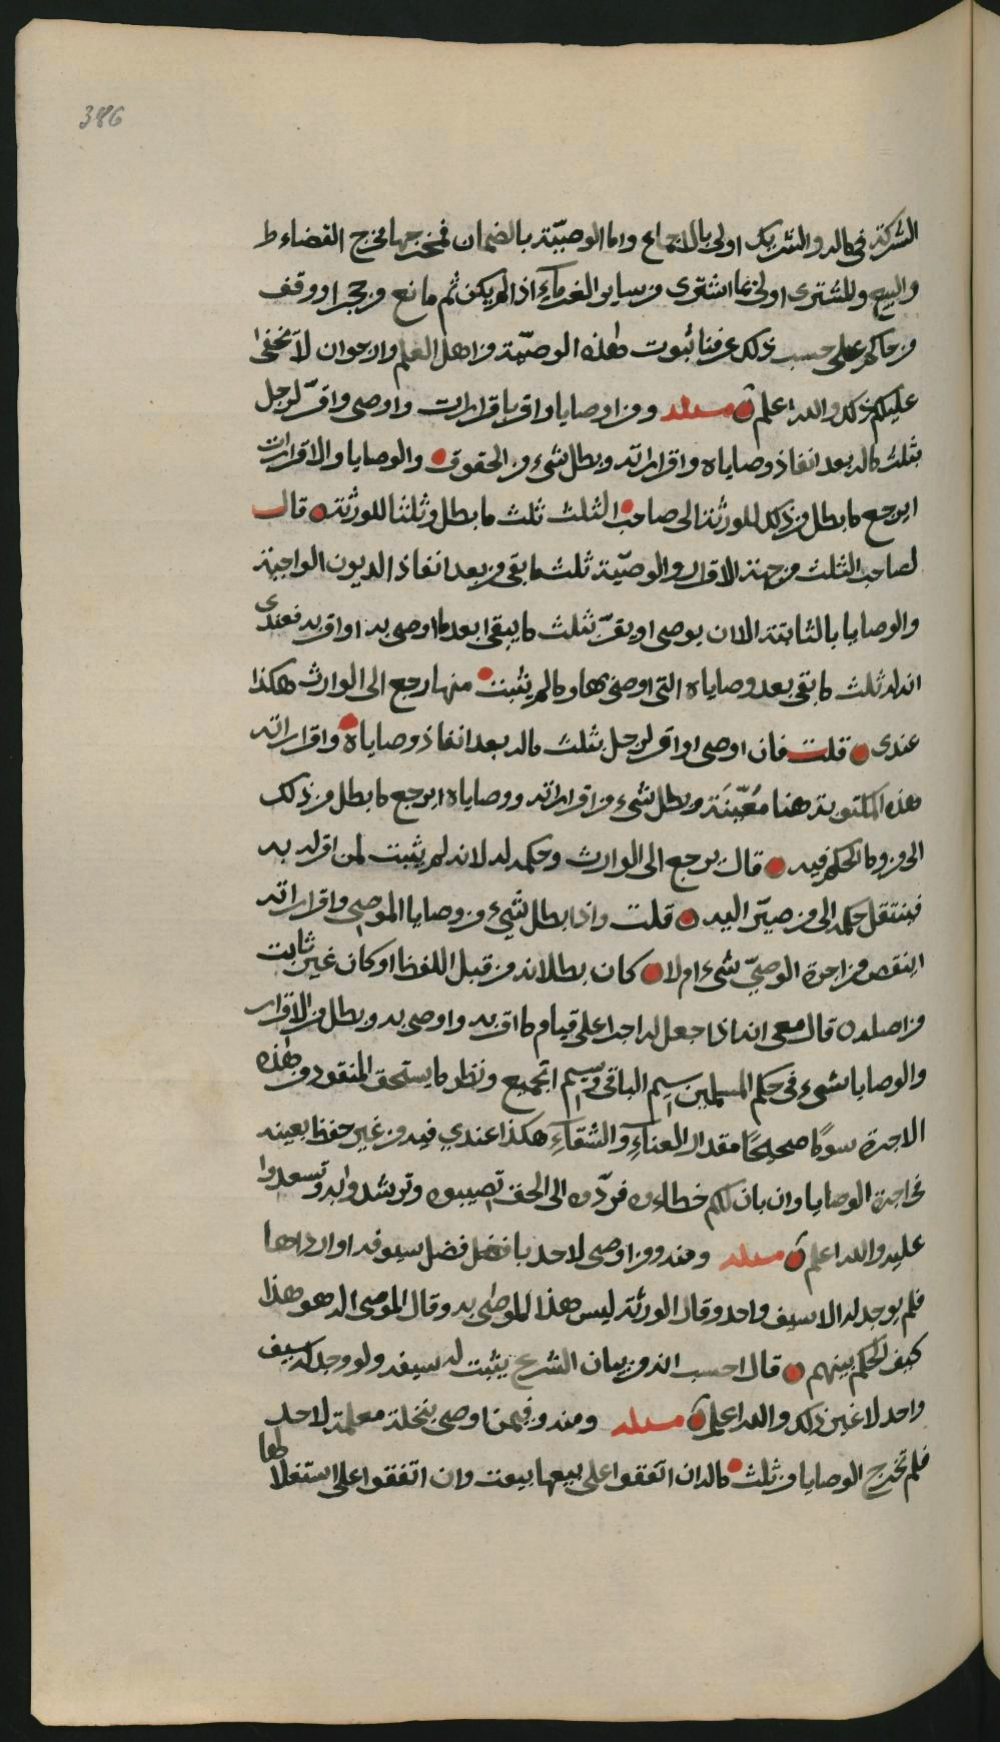 386
الشركة في ماله والشريك اولى بالاجماع واما الوصيّة بالضمان فمخرجها مخرج القضاء
والبيع وللمشترى اولى بما اشترى من ساير الغرماءِ اذا لم يكن ثم مانع من حجر او وقف
من حاكم على حسب ذلك عرفنا ثبوت هذه الوصيّة من اهل العلم وارجوان لا يخفى
عليكم ذلك والله اعلم مسئله ومن اوصى بوصايا واقر باقرارات واوصى واقرّ لرجل
بثلث ماله بعد انفاذ وصاياه واقراراته وبطل شيء من الحقوق والوصايا والاقرارات
ايرجع ما بطل من ذلك للورثة الى صاحب الثلث ثلث ما بطل وثلثا للورثته قال
لصاحب الثلث من جهة الاقرار والوصيّة ثلث ما بقي من بعد انفاذ الديون الواجبة
والوصايا بالثابتة الا ان يوصى او يقرّ بثلث ما يبقى بعد ما اوصى به او اقر به فعندى
ان له ثلث ما بقى بعد وصاياه التى اوصى بها وما لم يثبت منها رجع الى الوارث هكذا
عندى قلت فان اوصى او اقر لرجل بثلث ماله بعد انفاذ وصاياه واقراراته
هذه المكتوبة هنا معُيّنَة وبطل شيء من اقراراته ووصاياه ايرجع ما بطل من ذلك
الى من وما الحكم فيه قال يرجع الى الوارث وحكمه له لانه لم يثبت لمن اقر له به
فينتقل حكمه الى من صيّر اليه قلت واذا بطل شيء من وصايا الموصي واقراراته
اينقص من اجرة الوصيّ شيء ام لا كان بطلانه من قبل اللفظ او كان غير ثابت
من اصله قال معى انه اذا جعل له اجرا على قيام ما اقر به واوصى به وبطل من الاقرار
والوصايا شيء فى حكم المسلمين الباقى الجميع ونظر ما يستحق المنقود من هذه
الاجرة سومًا صحيحًا مقدار العناءِ والشقاءِ هكذا عندي فيه من غير حفظ بعينه
في اجرة الوصايا وان بان لكم خطاءه فردّوه الى الحق تصيبوه وترشدوا به وتسعدوا
عليه والله اعلم مسئله ومنه ومن اوصى لاحد بافضل سيوفه او ارداها
فلم يوجد له الا سيف واحد وقال الورثة ليس هذا الموصى به وقال الموصى اله هو هذا
كيف الحكم بينهم قال احسب انه من بيان الشرع يثبت له سيفه ولو وجد له سيف
واحد لا غير ذلك والله اعلم مسئله ومنه وفيمن اوصى بنخلة معلمة لاحد
فلم تخرج الوصايا من ثلث ماله ان اتفقوا على بيعها بيعت وان اتفقوا على استغلالها